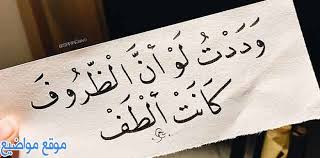 وَدَدْتُ لَوْ أَنَّ الْظُّرُوفَ
كَانَتْ أَلْطَفْ
موقع مواضيع